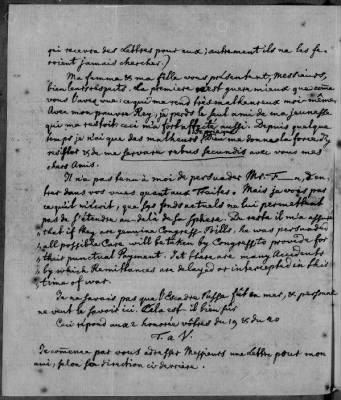 qui recevra des Lettres pour eux; autrement ils ne les feroient jamais chercher.)
Ma femme & ma fille vous présentent, Messieurs,
bien leurs respects. La premiere n'est guere mieux que comme
vous l'avez vue: ce qui me rend très malheureux moi-même.
Avec mon pauvre Rey, je perds le seul ami de ma jeunesse
qui me restoit: ceci m'a fort affecté aussi. Depuis quelque
temps je n'ai que des malheurs: Dieu me donne la force d'y
résister & de me servare rebus secundis avec vous mes
chers Amis.
Il n'a pas tenu à moi de persuader Mr. F—n, d'entrer
dans vos vues quant aux Traites. Mais je vois par
ce qu'il m'écrit, que ses fonds actuels ne lui permettent
pas de s'étendre au-delà de sa sphere. Du reste il m'a assuré
that if they are genuine Congress Bills, he was persuaded
all possible Care will be taken by Congress to provide for
their punctual Payment. Yet there are many Accidents
by which Remittances are delayed or intercepted in this
time of war.
Je ne savois pas que l'Escadre Russe fût en mer, & personne
ne veut le savoir ici. Cela est-il bien sûr
Ceci répond aux 2 honorées vôtres du 19 & du 20
T. a V.
Je commence par vous adresser Messieurs une Lettre pour mon
ami, selon sa direction ci-derriere.